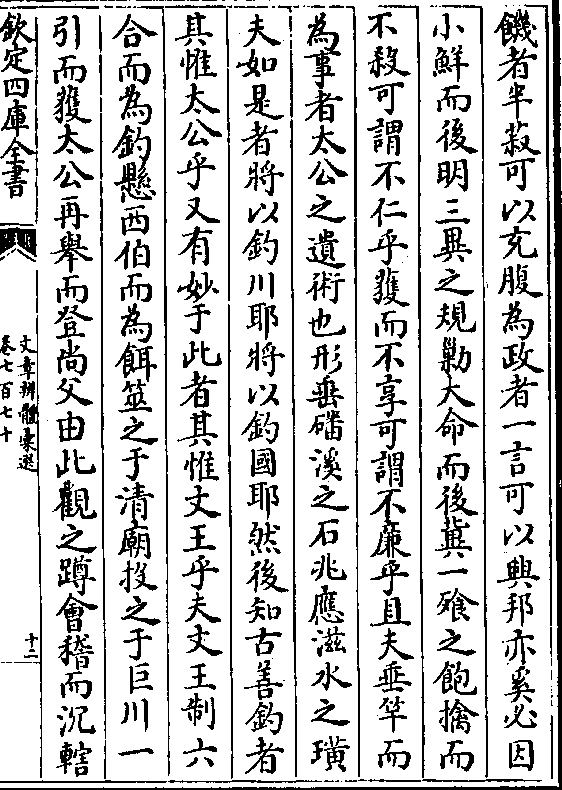 饑者半菽可以充腹為政者一言可以興邦亦奚必因
小鮮而後明三異之規勦大命而後冀一飱之飽擒而
不殺可謂不仁乎獲而不享可謂不廉乎且夫垂竿而
為事者太公之遺術也形垂磻溪之石兆應滋水之璜
夫如是者將以釣川耶將以釣國耶然後知古善釣者
其惟太公乎又有妙于此者其惟文王乎夫文王制六
合而為釣懸西伯而為餌筮之于清廟投之于巨川一
引而獲太公再舉而登尚父由此觀之蹲會稽而沉轄
欽定四庫全書
文章辨體彙選
卷七百七十
十二